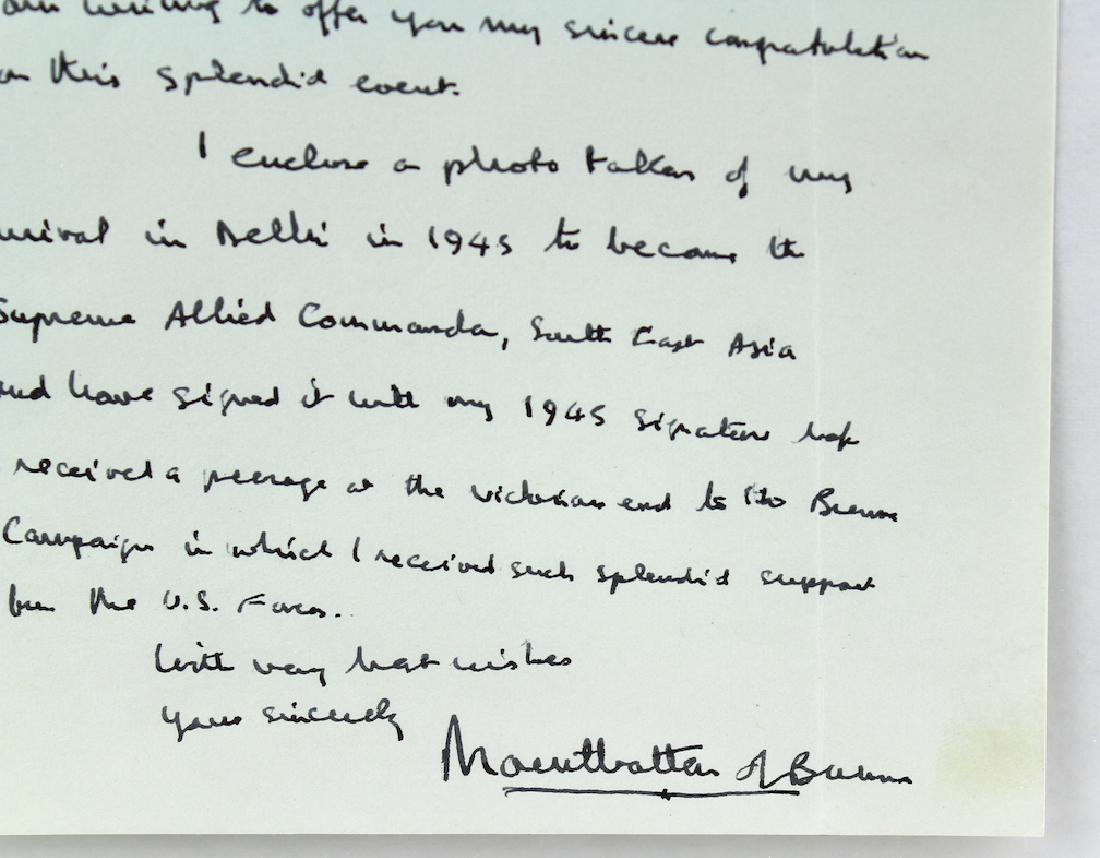 am writing to offer you my sincere congratulation
on this splendid event.
I enclose a photo taken of my
rrival in Delhi in 1945 to become the
Supreme Allied Commander, South East Asia
and have signed it with my 1945 signature before
received a peerage at the victorious end to the Burma
Campaign in which I received such splendid support
from the U.S. Forces.
With very best wishes
Yours sincerely
Mountbatten of Burma